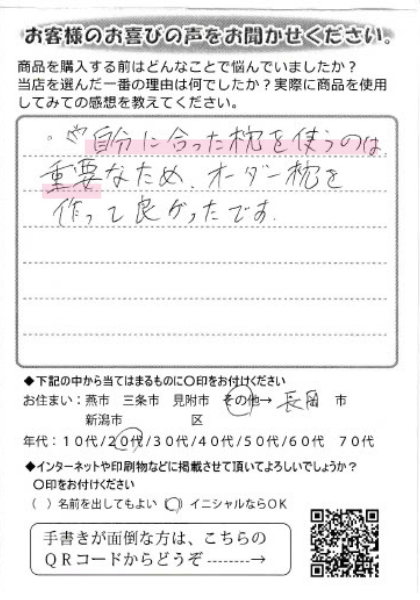 お客様のお喜びの声をお聞かせください。
商品を購入する前はどんなことで悩んでいましたか?
当店を選んだ一番の理由は何でしたか?実際に商品を使用
してみての感想を教えてください。
・や自分に合った枕を使うのは、
重要なため、オーダー枕を
作って良かったです。
◆下記の中から当てはまるものに〇印をお付けください
お住まい：燕市 三条市 見附市 その他→ 長岡 市
新潟市 区
年代：10代/20代/30代/40代/50代/60代 70代
◆インターネットや印刷物などに掲載させて頂いてよろしいでしょうか?
〇印をお付けください
( )名前を出してもよい (〇)イニシャルならOK
手書きが面倒な方は、こちらの
QRコードからどうぞ--------→